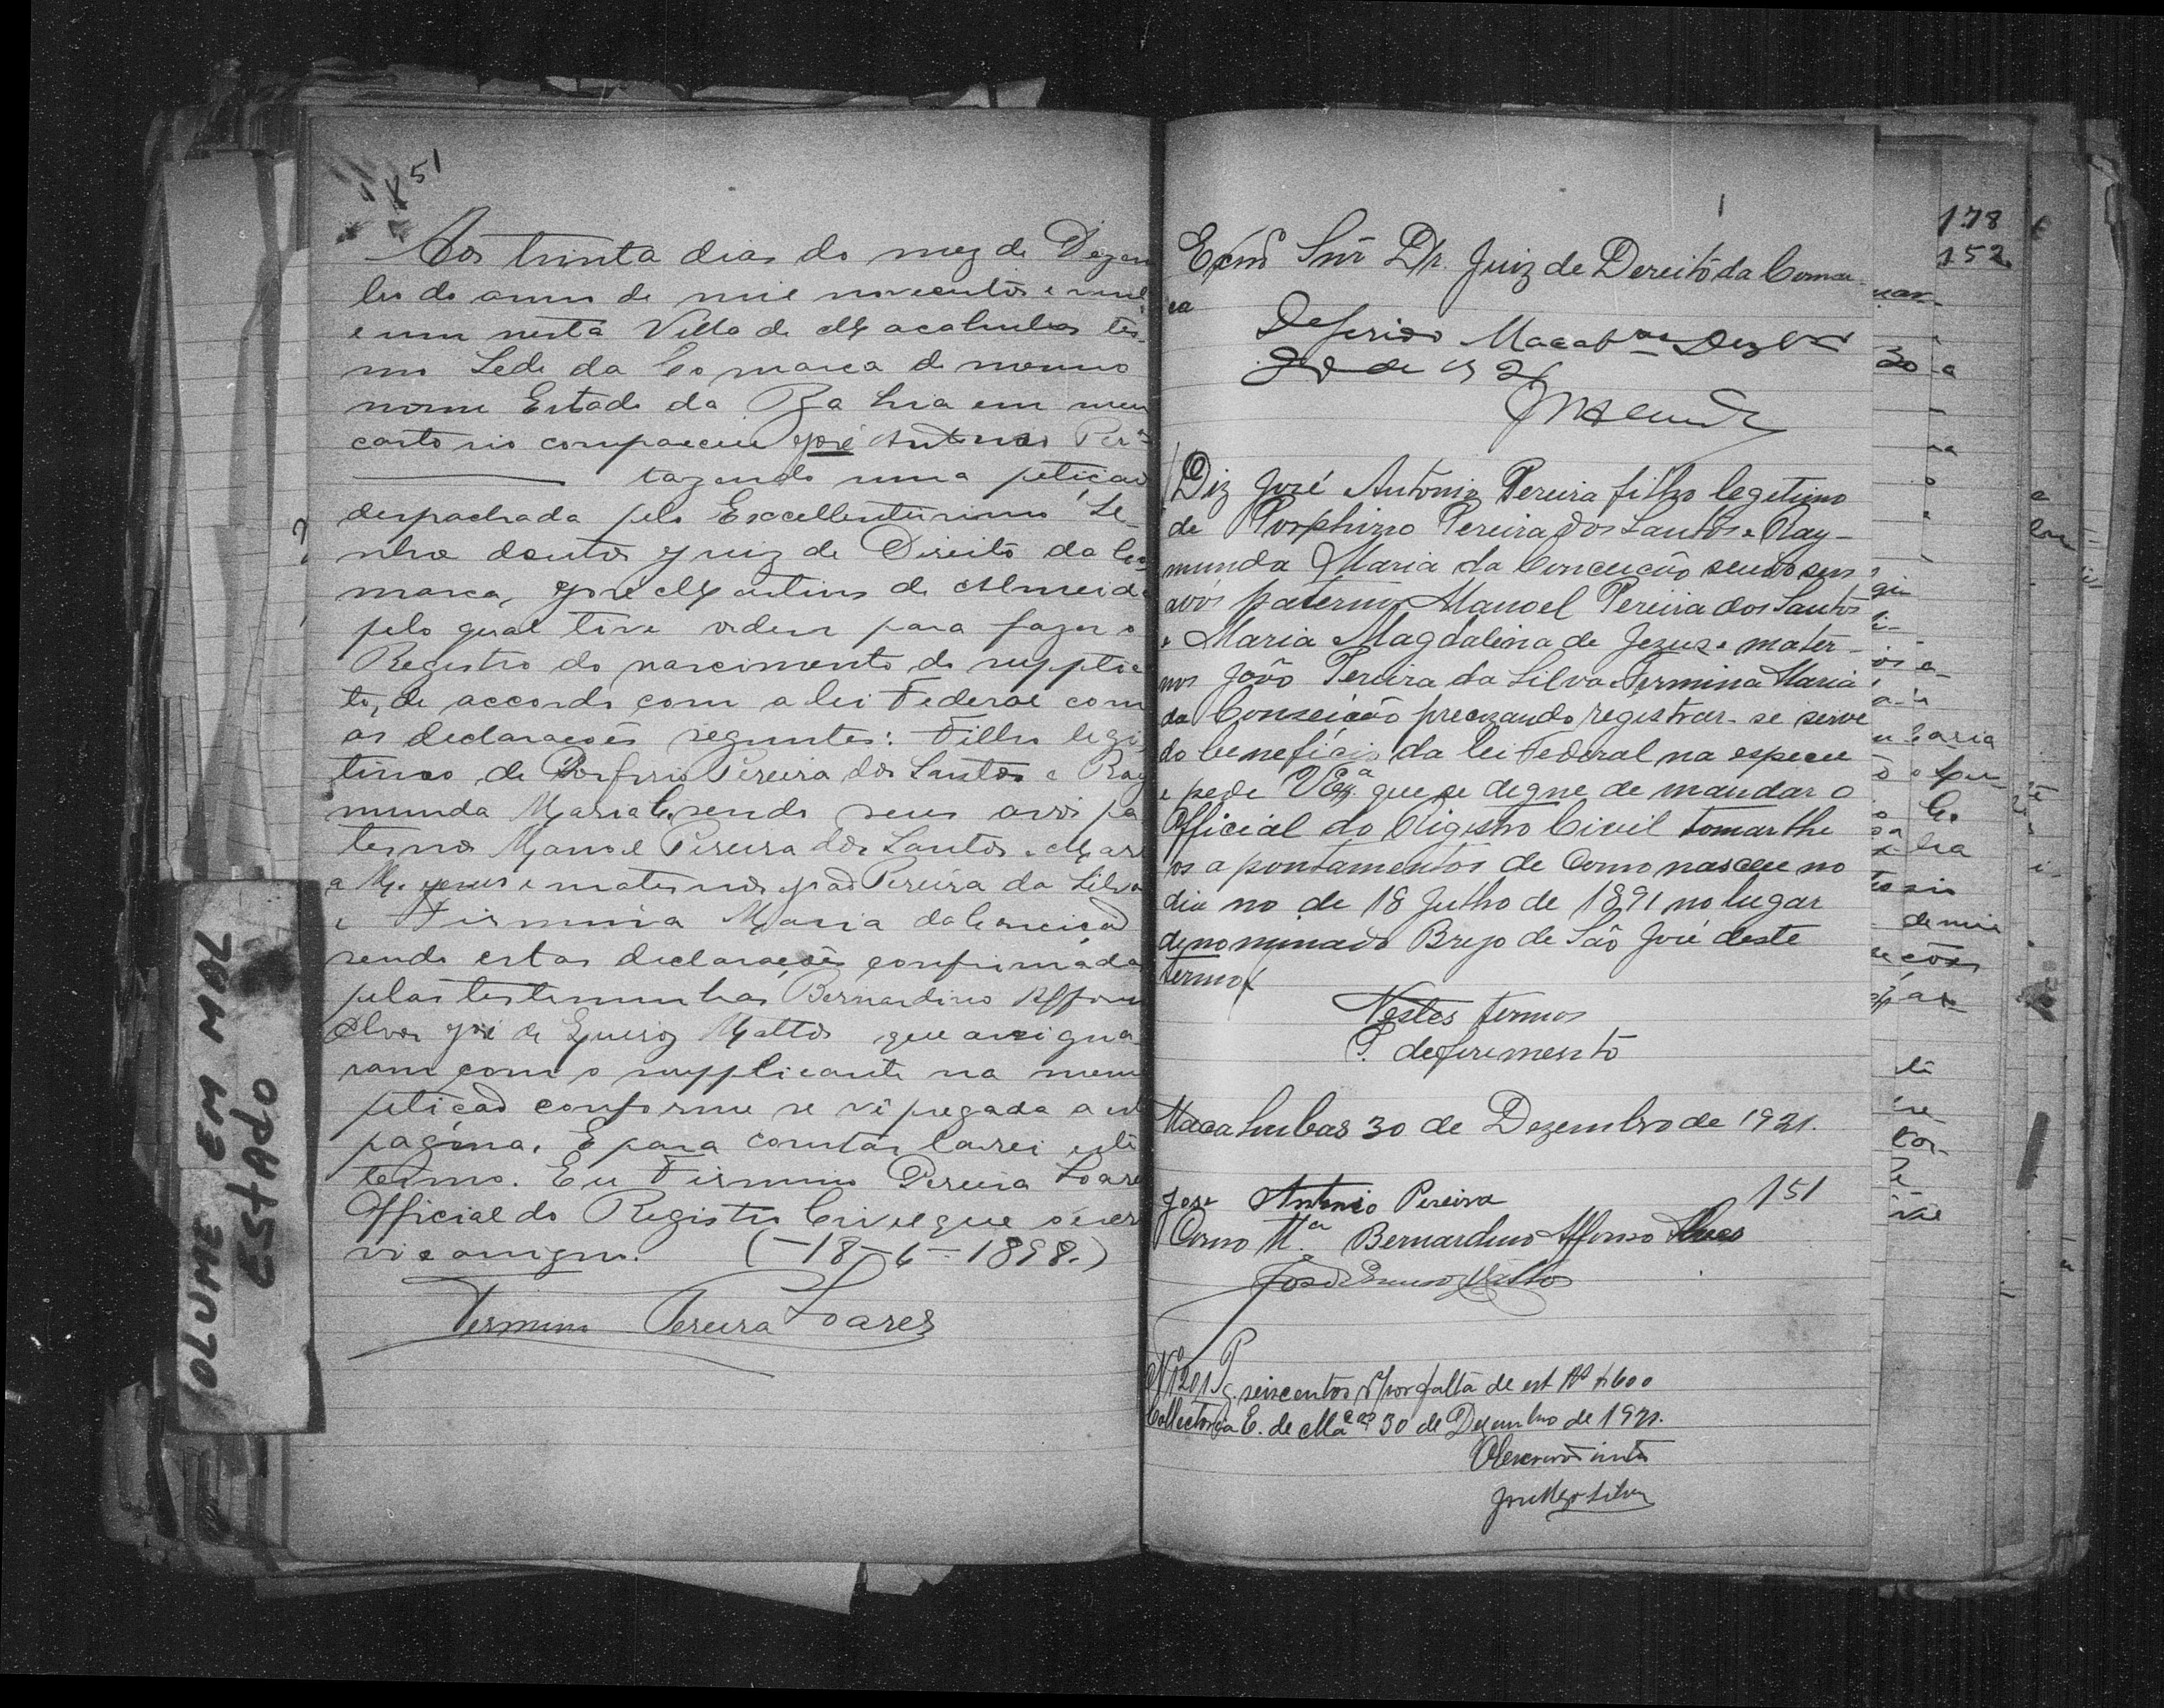 151
Aos trinta dias do mez de Dezem
bro do anno de mil novecentos e vinte
e um nesta Villa de Macahubas ter
mo Sede da Comarca do mesmo
nome Estado da Bahia em meu
cartorio compareceu José Antonio Per.ª
trazendo uma petição
despachada pelo Excellentissimo Se-
nhor doutor Juiz de Direito da Co
marca, José Martins de Almeida
pelo qual tive ordem para fazer o
Registro do nascimento do supplic
te, de accordo com a lei Federal com
as declarações seguntes: Filho legi
timo de Porfirio Pereira dos Santos e Ray
munda Maria C. sendo seus avós pa
ternos Manoel Pereira dos Santos e Mari
a M. Jesus e maternos João Pereira da Silva
e Firmina Maria da Conceição
sendo estas declarações confirmada
pelas testemunhas Bernardino Affonso
Alves José de Queiroz Mattos que assigna
ram com o supplicante na mesm
petição conforme se vê pregada a est
pagina. E para constar lavrei este
termo. Eu Firmino Pereira Soare
Official do Registro Civil que o escr
vi e assigno. (-18-6-1898.)
Firmino Pereira Soares
VOLUME EM MAL
ESTADO
Exmº Snr Dr. Juiz de Dereito da Comar
ca
Deferido Macabas Dezbro
30 de 1921
Diz José Antonio Pereira filho legitimo
de Porphirio Pereira dos Santos e Ray-
munda Maria da Conceição sendo seus
avós paternos Manoel Pereira dos Santos
e Maria Magdalena de Jezus e mater-
nos João Pereira da Silva e Firmina Maria
da Conseição precizando registrar-se serve
do beneficio da lei Federal na especie
e pede V Exª que se degne de mandar o
Official do Rigistro Civil tomarthe
os apontamentos de Como nasceu no
dia no de 18 Julho de 1891 no lugar
denominado Brejo de São José deste
termo
Nestes termos
P. deferimento
Macahubas 30 de Dezembro de 1921.
José Antonio Pereira 151
Como Ttª Bernardino Affonso Alves
José de Queiroz Mattos
Nº 1201 Pg. seiscentos rs por falta de est Rs $600
Collectoria E. de Macas 30 de Dezembro de 1921.
178
152